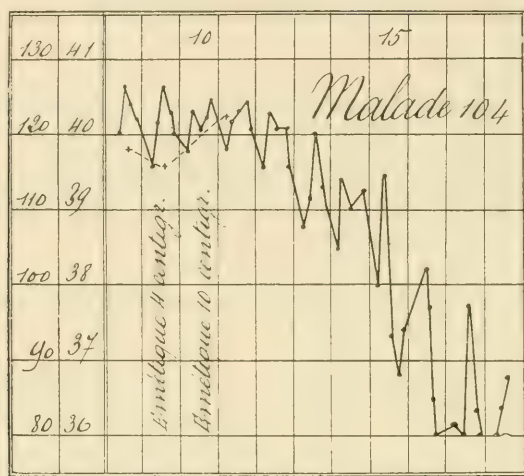 10 15
130 41
Malade 104
120 40
110 39
100 38
90 37
80 36
Emétique 4 centigr.
Emétique 10 centigr.